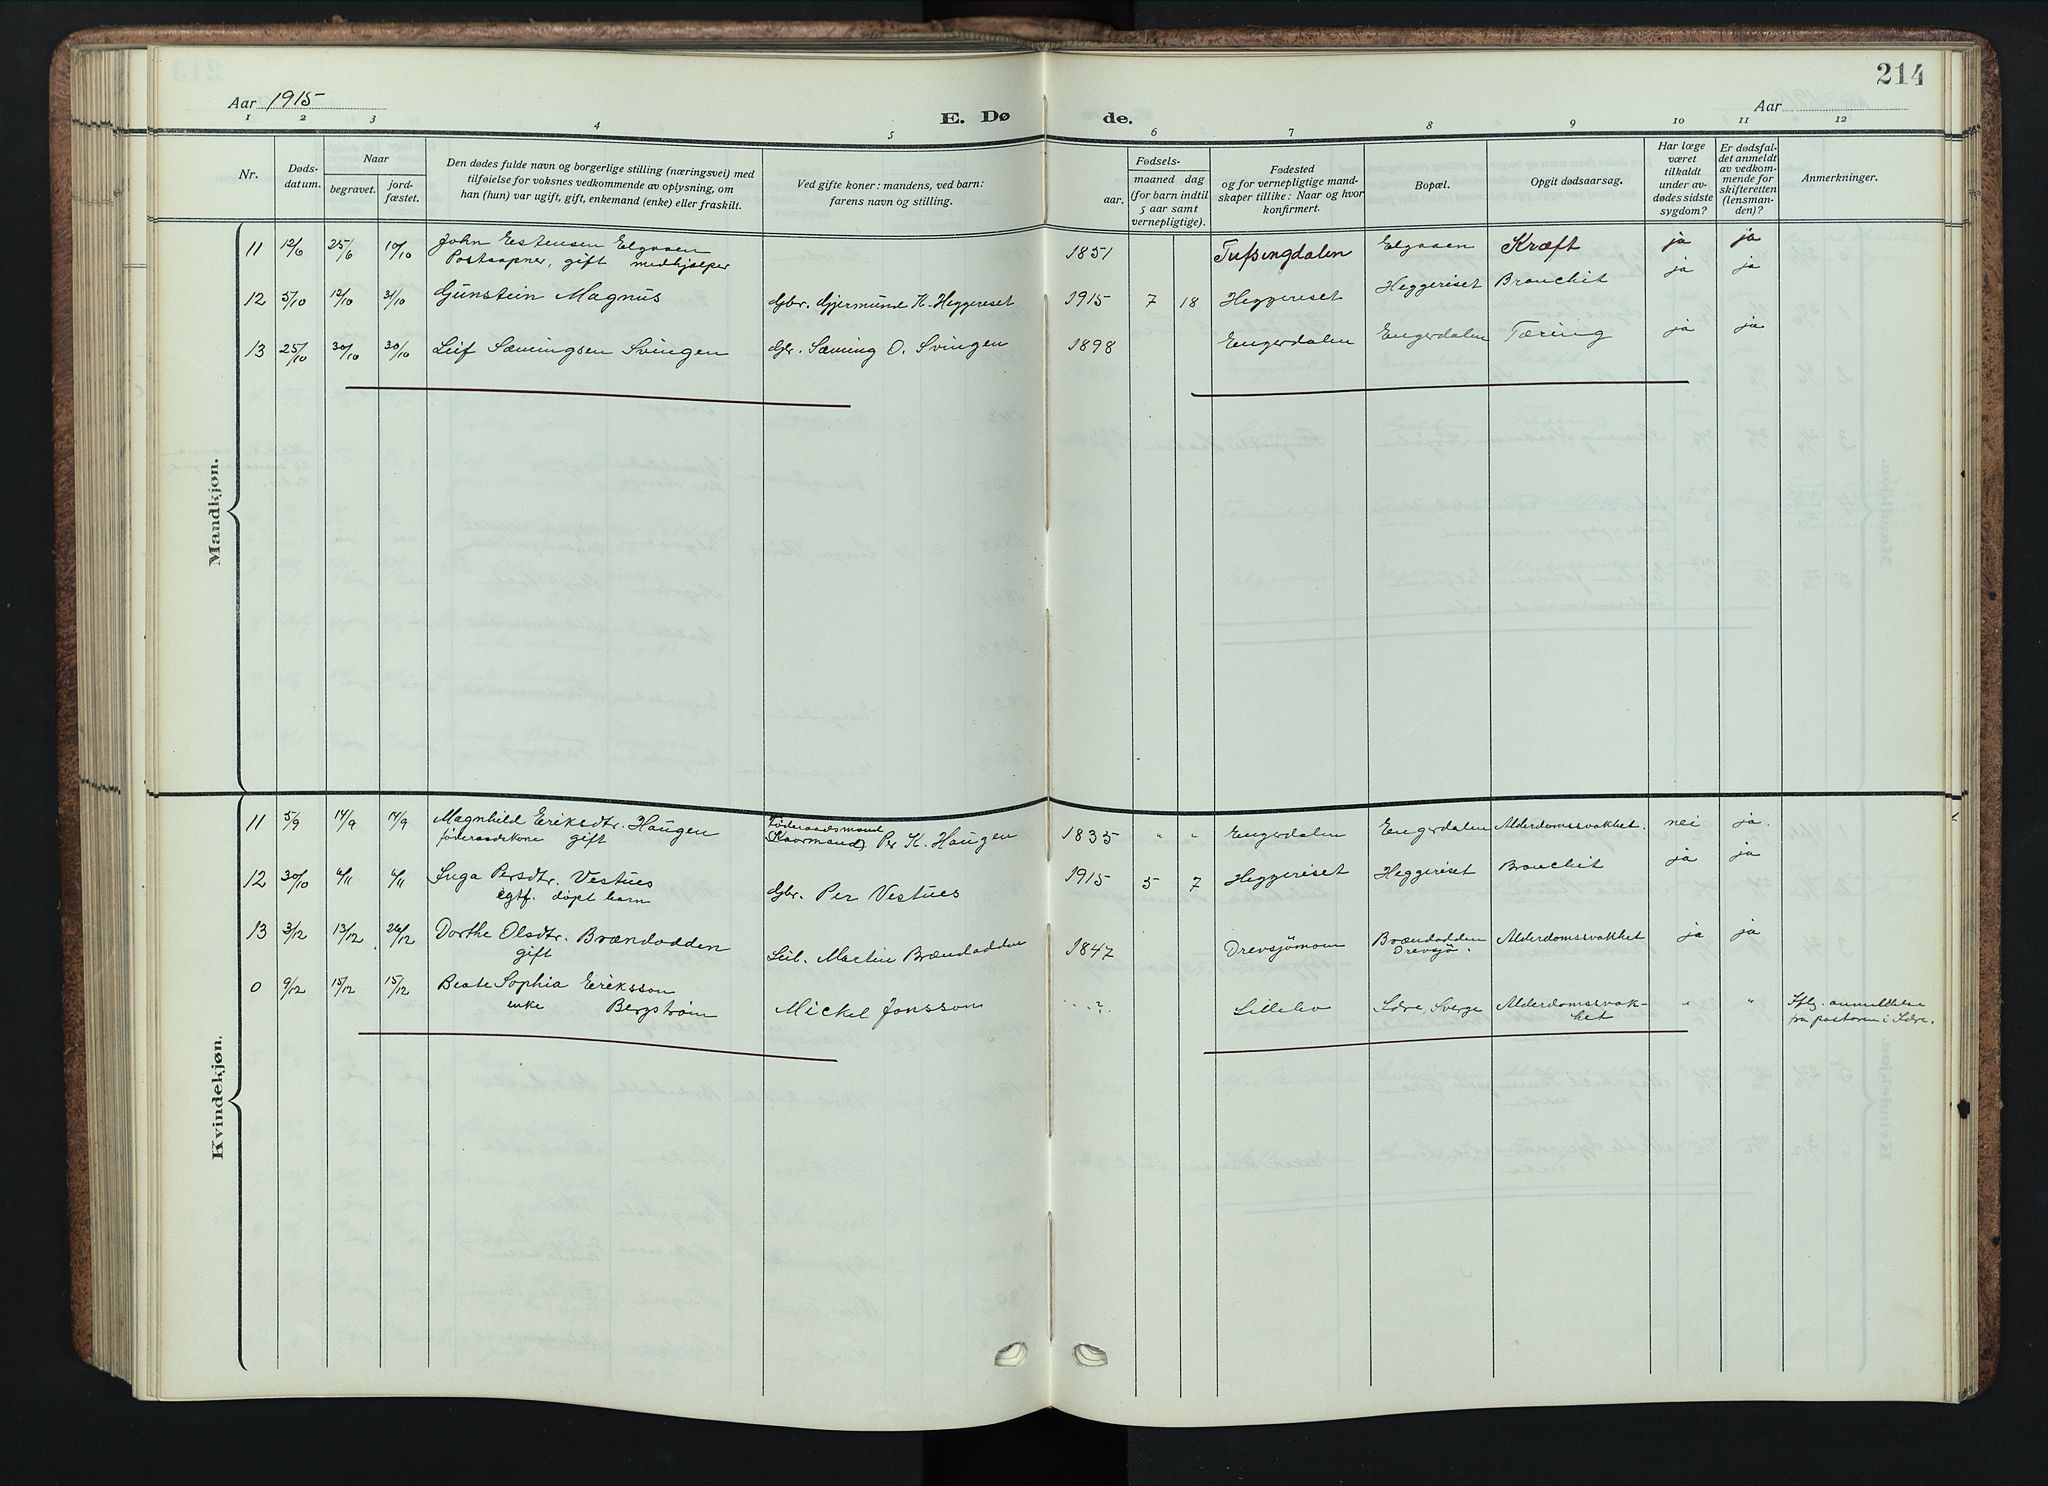 214
Aar 1915
E. Dø
de.
Aar
1 2 3 4 5 6 7 8 9 10 11 12
Nr.
Døds-
datum.
Naar
begravet.
jord-
fæstet.
Den dødes fulde navn og borgerlige stilling (næringsvei) med
tilføielse for voksnes vedkommende av oplysning, om
han (hun) var ugift, gift, enkemand (enke) eller fraskilt.
Ved gifte koner: mandens, ved barn:
farens navn og stilling.
Fødsels-
aar.
maaned dag
(for barn indtil
5 aar samt
vernepligtige).
Fødested
og for vernepligtige mand-
skaper tillike: Naar og hvor
konfirmert.
Bopæl.
Opgit dødsaarsag.
Har læge
været
tilkaldt
under av-
dødes sidste
sygdom?
Er dødsfal-
det anmeldt
av vedkom-
mende for
skifteretten
(lensman-
den)?
Anmerkninger.
Mandkjøn.
11 12/6 25/6 10/10 John Estensen Elgaaen 1851 Tufsingdalen Elgaaen Kræft ja ja
Postaapner, gift medhjælper
12 5/10 12/10 31/10 Gunstein Magnus Gbr. Gjermund K. Heggeriset 1915 7 18 Heggeriset Heggeriset Bronchit ja ja
13 25/10 30/10 30/10 Leif Sæmingsen Svingen Gbr. Sæming O. Svingen 1898 Engerdalen Engerdalen Tæring ja ja
Kvindekjøn.
11 5/9 14/9 14/9 Magnhild Eriksdtr. Haugen Føderaadsmand 1835 " " Engerdalen Engerdalen Alderdomssvakhet. nei ja.
føderaadskone gift (Kaarmand) Per K. Haugen
12 30/10 6/11 6/11 Inga Persdtr. Vestues Gbr. Per Vestues 1915 5 7 Heggeriset Heggeriset Bronchit ja ja
egtf. døpt barn
13 3/12 13/12 26/12 Dorthe Olsdtr. Brændodden Leil. Martin Brændodden 1847 Drevsjømoen Brændodden Alderdomssvakhet ja ja
gift Drevsjø.
0 9/12 15/12 15/12 Beate Sophia Eriksson Mickel Jonsson ...?. Lillebo Idre, Sverge Alderdomssvak- " " Iflg. anmeldelse
enke Bergstrøm het fra pastoren i Idre.